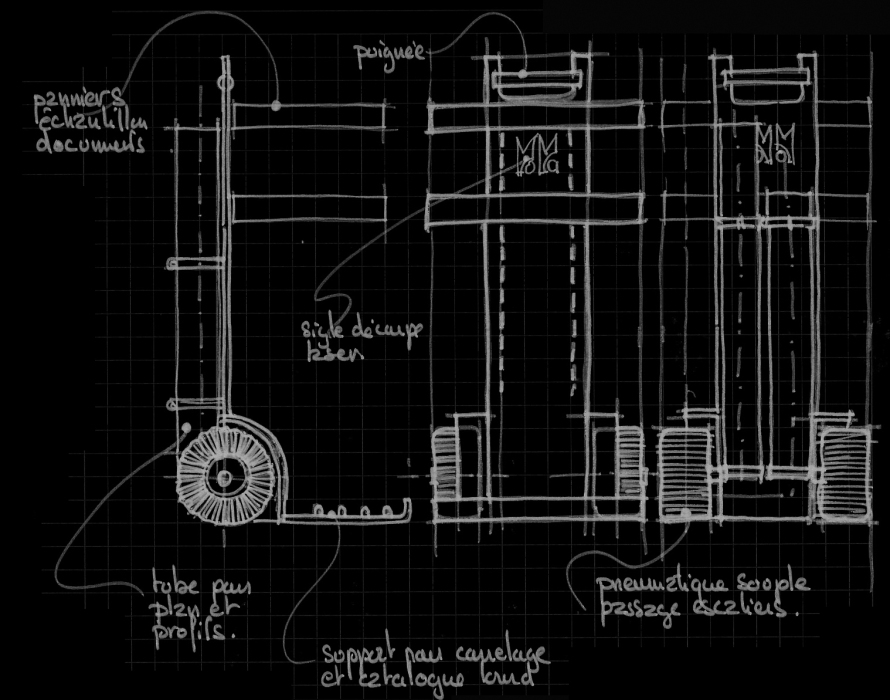 poignée
panniers
échantillon
documents
MM
sigle découpe
laser
tube pour
plan et
profils.
pneumatique souple
passage escaliers.
support pour carrelage
et catalogue lourd